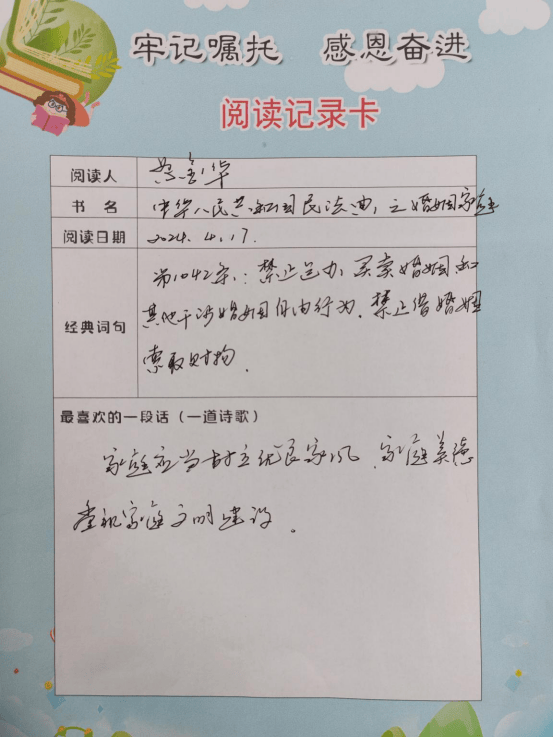 牢记嘱托 感恩奋进
阅读记录卡
阅读人 金华
书名 中华人民共和国民法典,之婚姻家庭
阅读日期 2024.4.17.
经典词句
第1042条:禁止包办、买卖婚姻和
其他干涉婚姻自由行为.禁止借婚姻
索取财物.
最喜欢的一段话(一道诗歌)
家庭应当树立优良家风,家庭美德
重视家庭文明建设。